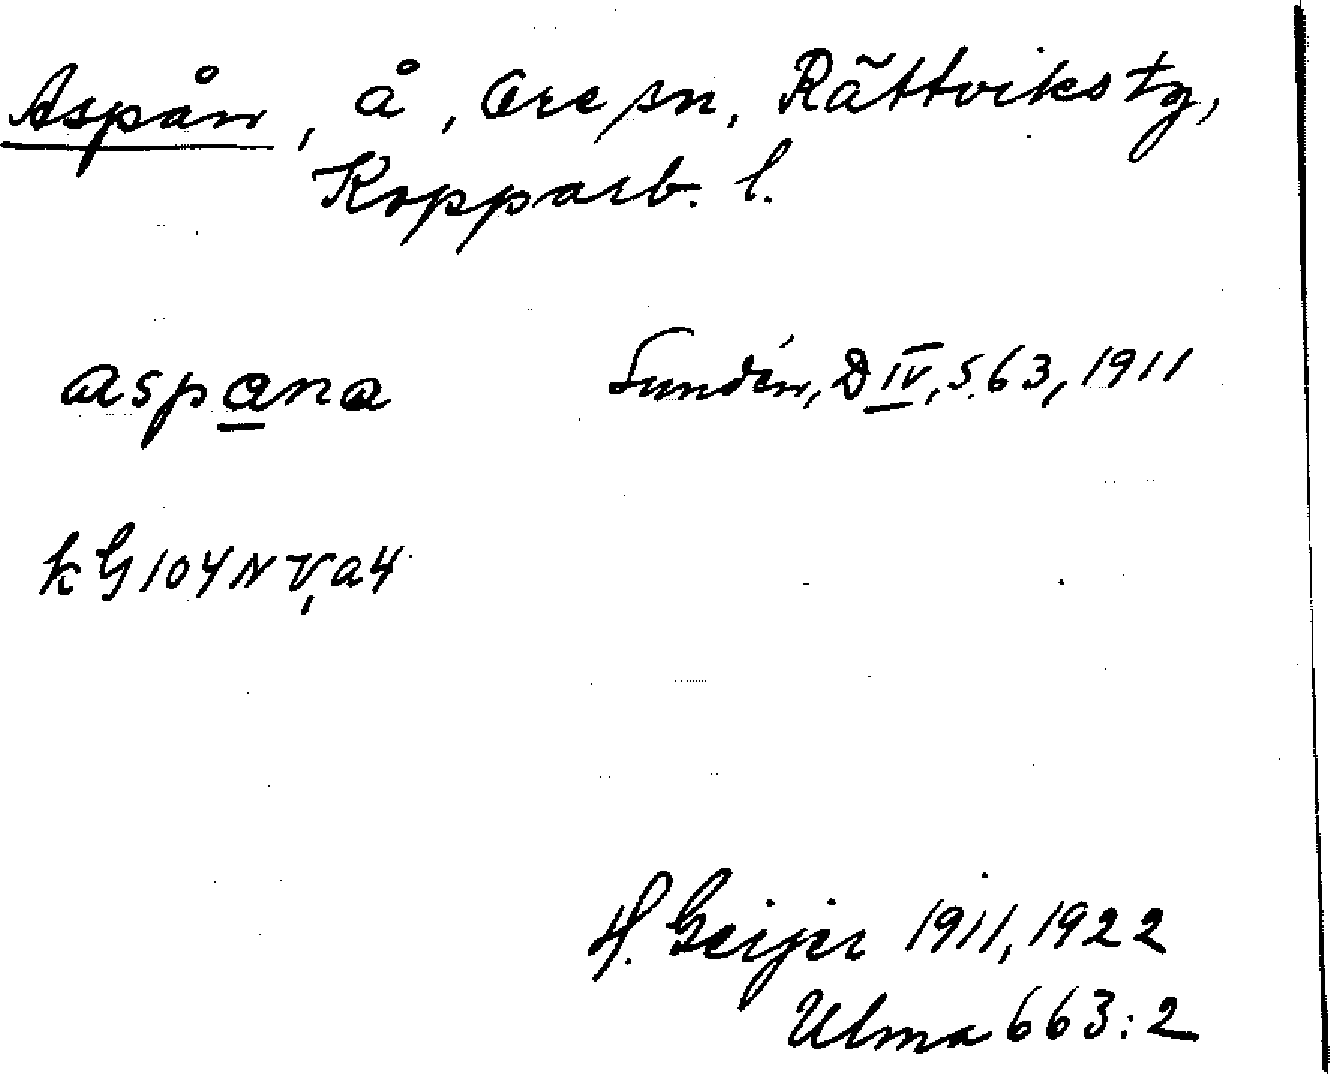 Aspån, å, Ore sn, Rättviks tg,
Kopparb. l.
aspana Sundén, D IV, s. 63, 1911
k G 104 NV, a4
H. Geijer 1911, 1922
Ulma 663:2